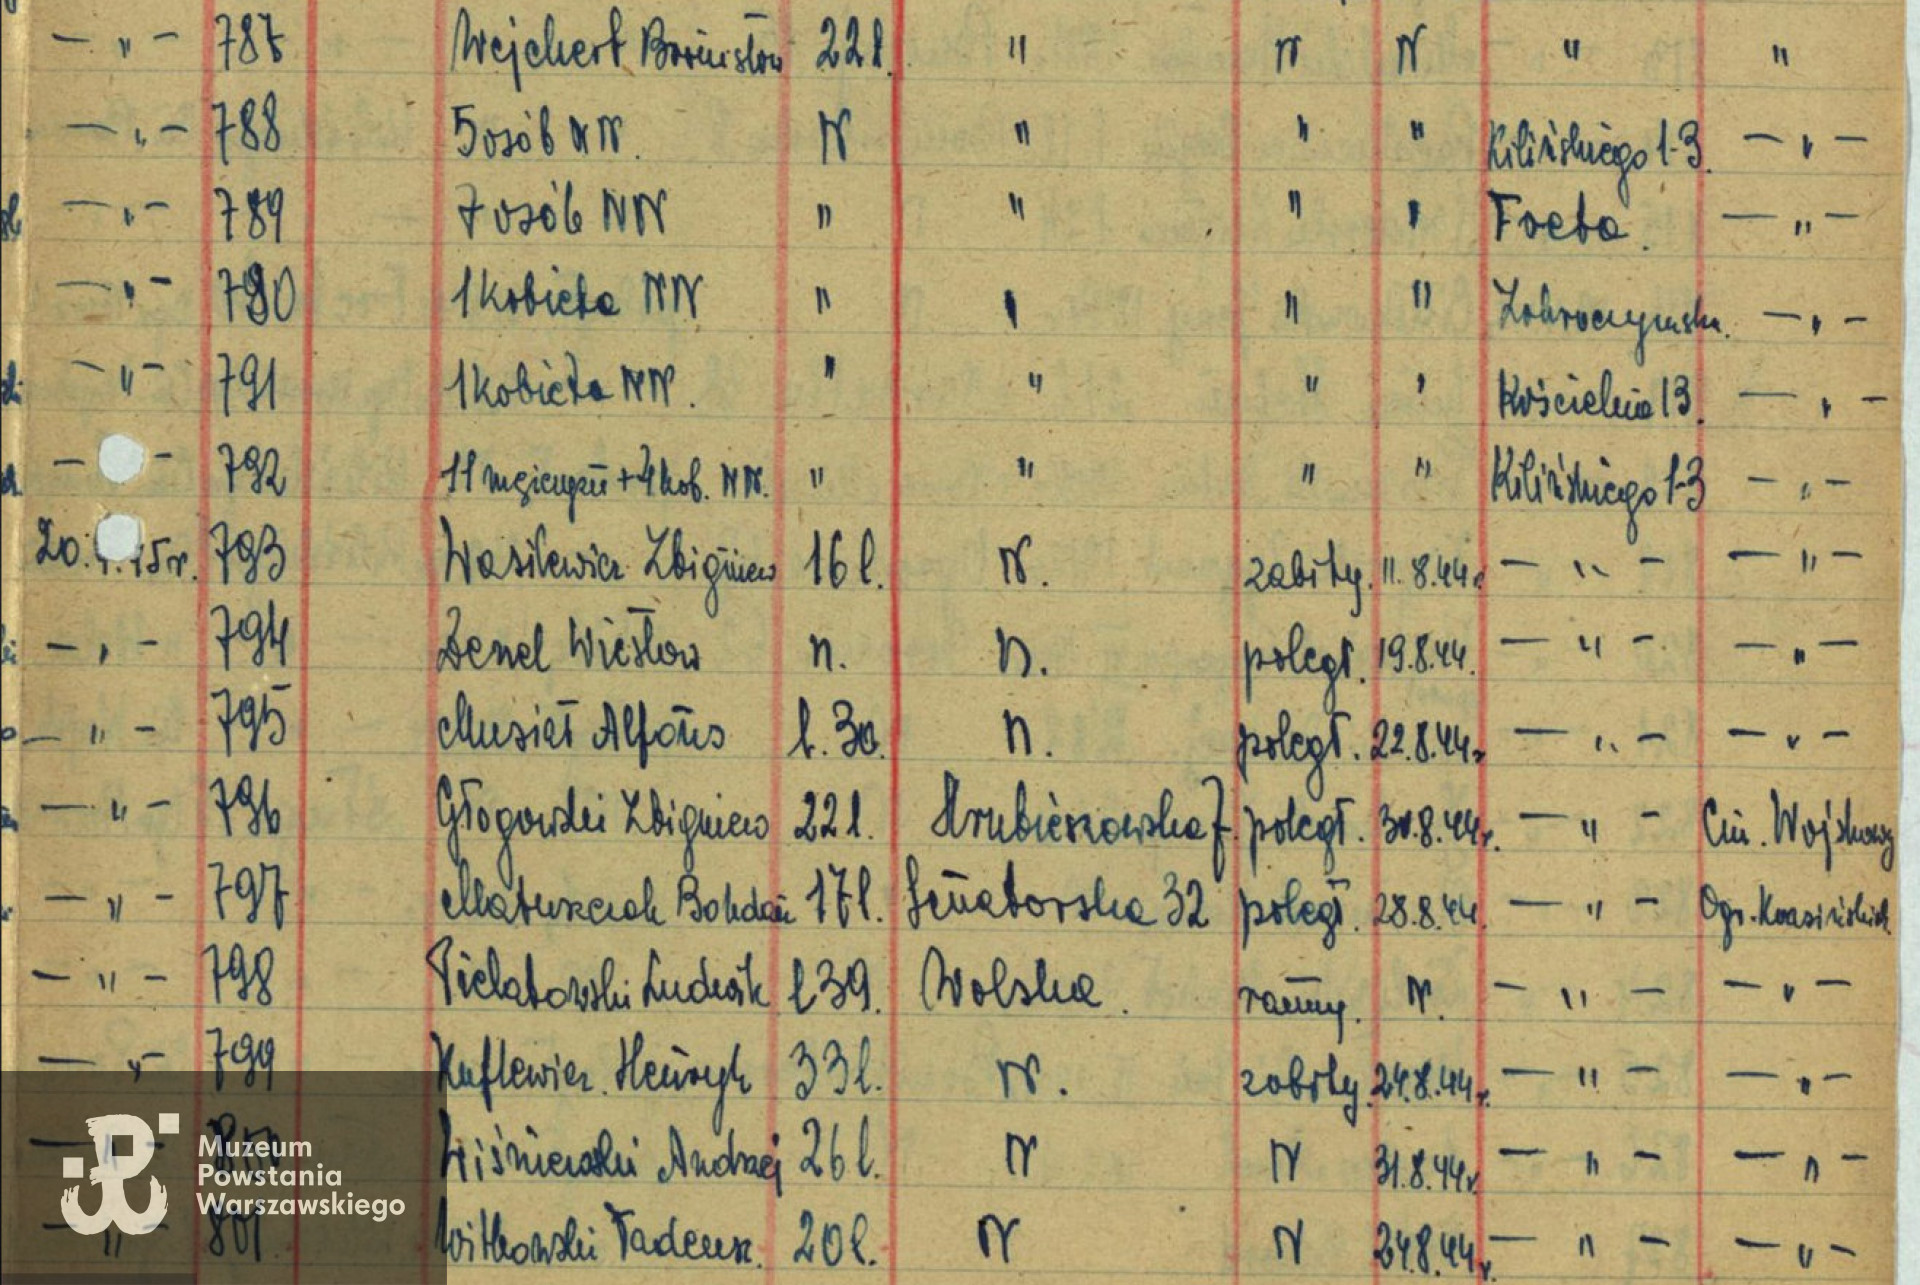 — " — 787 Wejchert Bronisław 22 l. " N N " "
— " — 788 5 osób NN. N " " " Kilińskiego 1-3. — " —
— " — 789 7 osób NN " " " " Freta. — " —
— " — 790 1 kobieta NN " " " " Zakroczymska. — " —
— " — 791 1 kobieta NN. " " " " Kościelna 13. — " —
— — 792 11 mężczyzn + 4 kob. NN. " " " " Kilińskiego 1-3 — " —
20. 45 r. 793 Wasilewicz Zbigniew 16 l. N. zabity. 11.8.44 r — " — — " —
— " — 794 Wiesław n. n. poległ. 19.8.44. — " — — " —
— " — 795 Musiał Alfons l. 30. n. poległ. 22.8.44 r — " — — " —
— " — 796 Głogowski Zbigniew 22 l. Hrubieszowska 7. poległ. 8.44 r. — " — Cm. Wojskowy
— " — 797 Matuszczak Bohdan 17 l. Senatorska 32 poległ. 28.8.44. — " — Ogr. Krasińskich.
— " — 798 Pielatowski Ludwik l 39. Wolska. ranny. N. — " — — " —
— " — 799 Kuflewicz. Henryk 33 l. N. zabity. 24.8.44 r. — " — — " —
— " — 800 Wiśniewski Andrzej 26 l. N N 31.8.44 r. — " — — " —
— " — 801. Witkowski Tadeusz. 20 l. N N 24.8.44 r. — " — — " —
Muzeum
Powstania
Warszawskiego